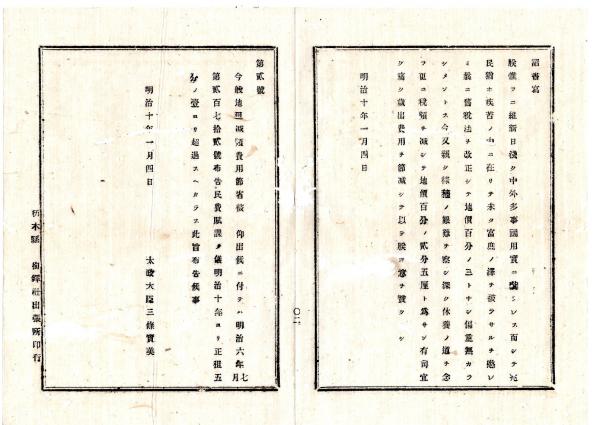 詔書寫
朕惟フニ維新日淺ク中外多事國用實ニ貲ラレス而シテ兆
民猶ホ疾苦ノ中ニ在リテ未タ富庶ノ澤ヲ被ラサルヲ愍レ
ミ曩ニ舊税法ヲ改正シテ地價百分ノ三トナシ偏重無カラ
シメントス今又親ク稼穡ノ艱難ヲ察シ深ク休養ノ道ヲ念
フ更ニ税額ヲ減シテ地價百分ノ貳分五厘ト爲サン有司宜
ク痛ク歳出費用ヲ節減シテ以テ朕カ意ヲ賛クヘシ
明治十年一月四日
〇二
第貳號
今般地租減額費用節省被 仰出候ニ付テハ明治六年七月
第貳百七拾貳號布告民費賦課ノ儀明治十年ヨリ正租五
分ノ壹ヨリ超過スヘカラス此旨布告候事
明治十年一月四日
太政大臣三條實美
栃木縣 出張所印行